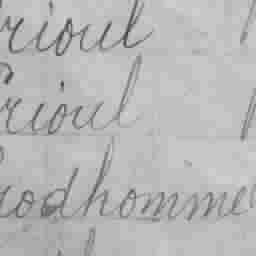 rioul
rioul
rodhomme